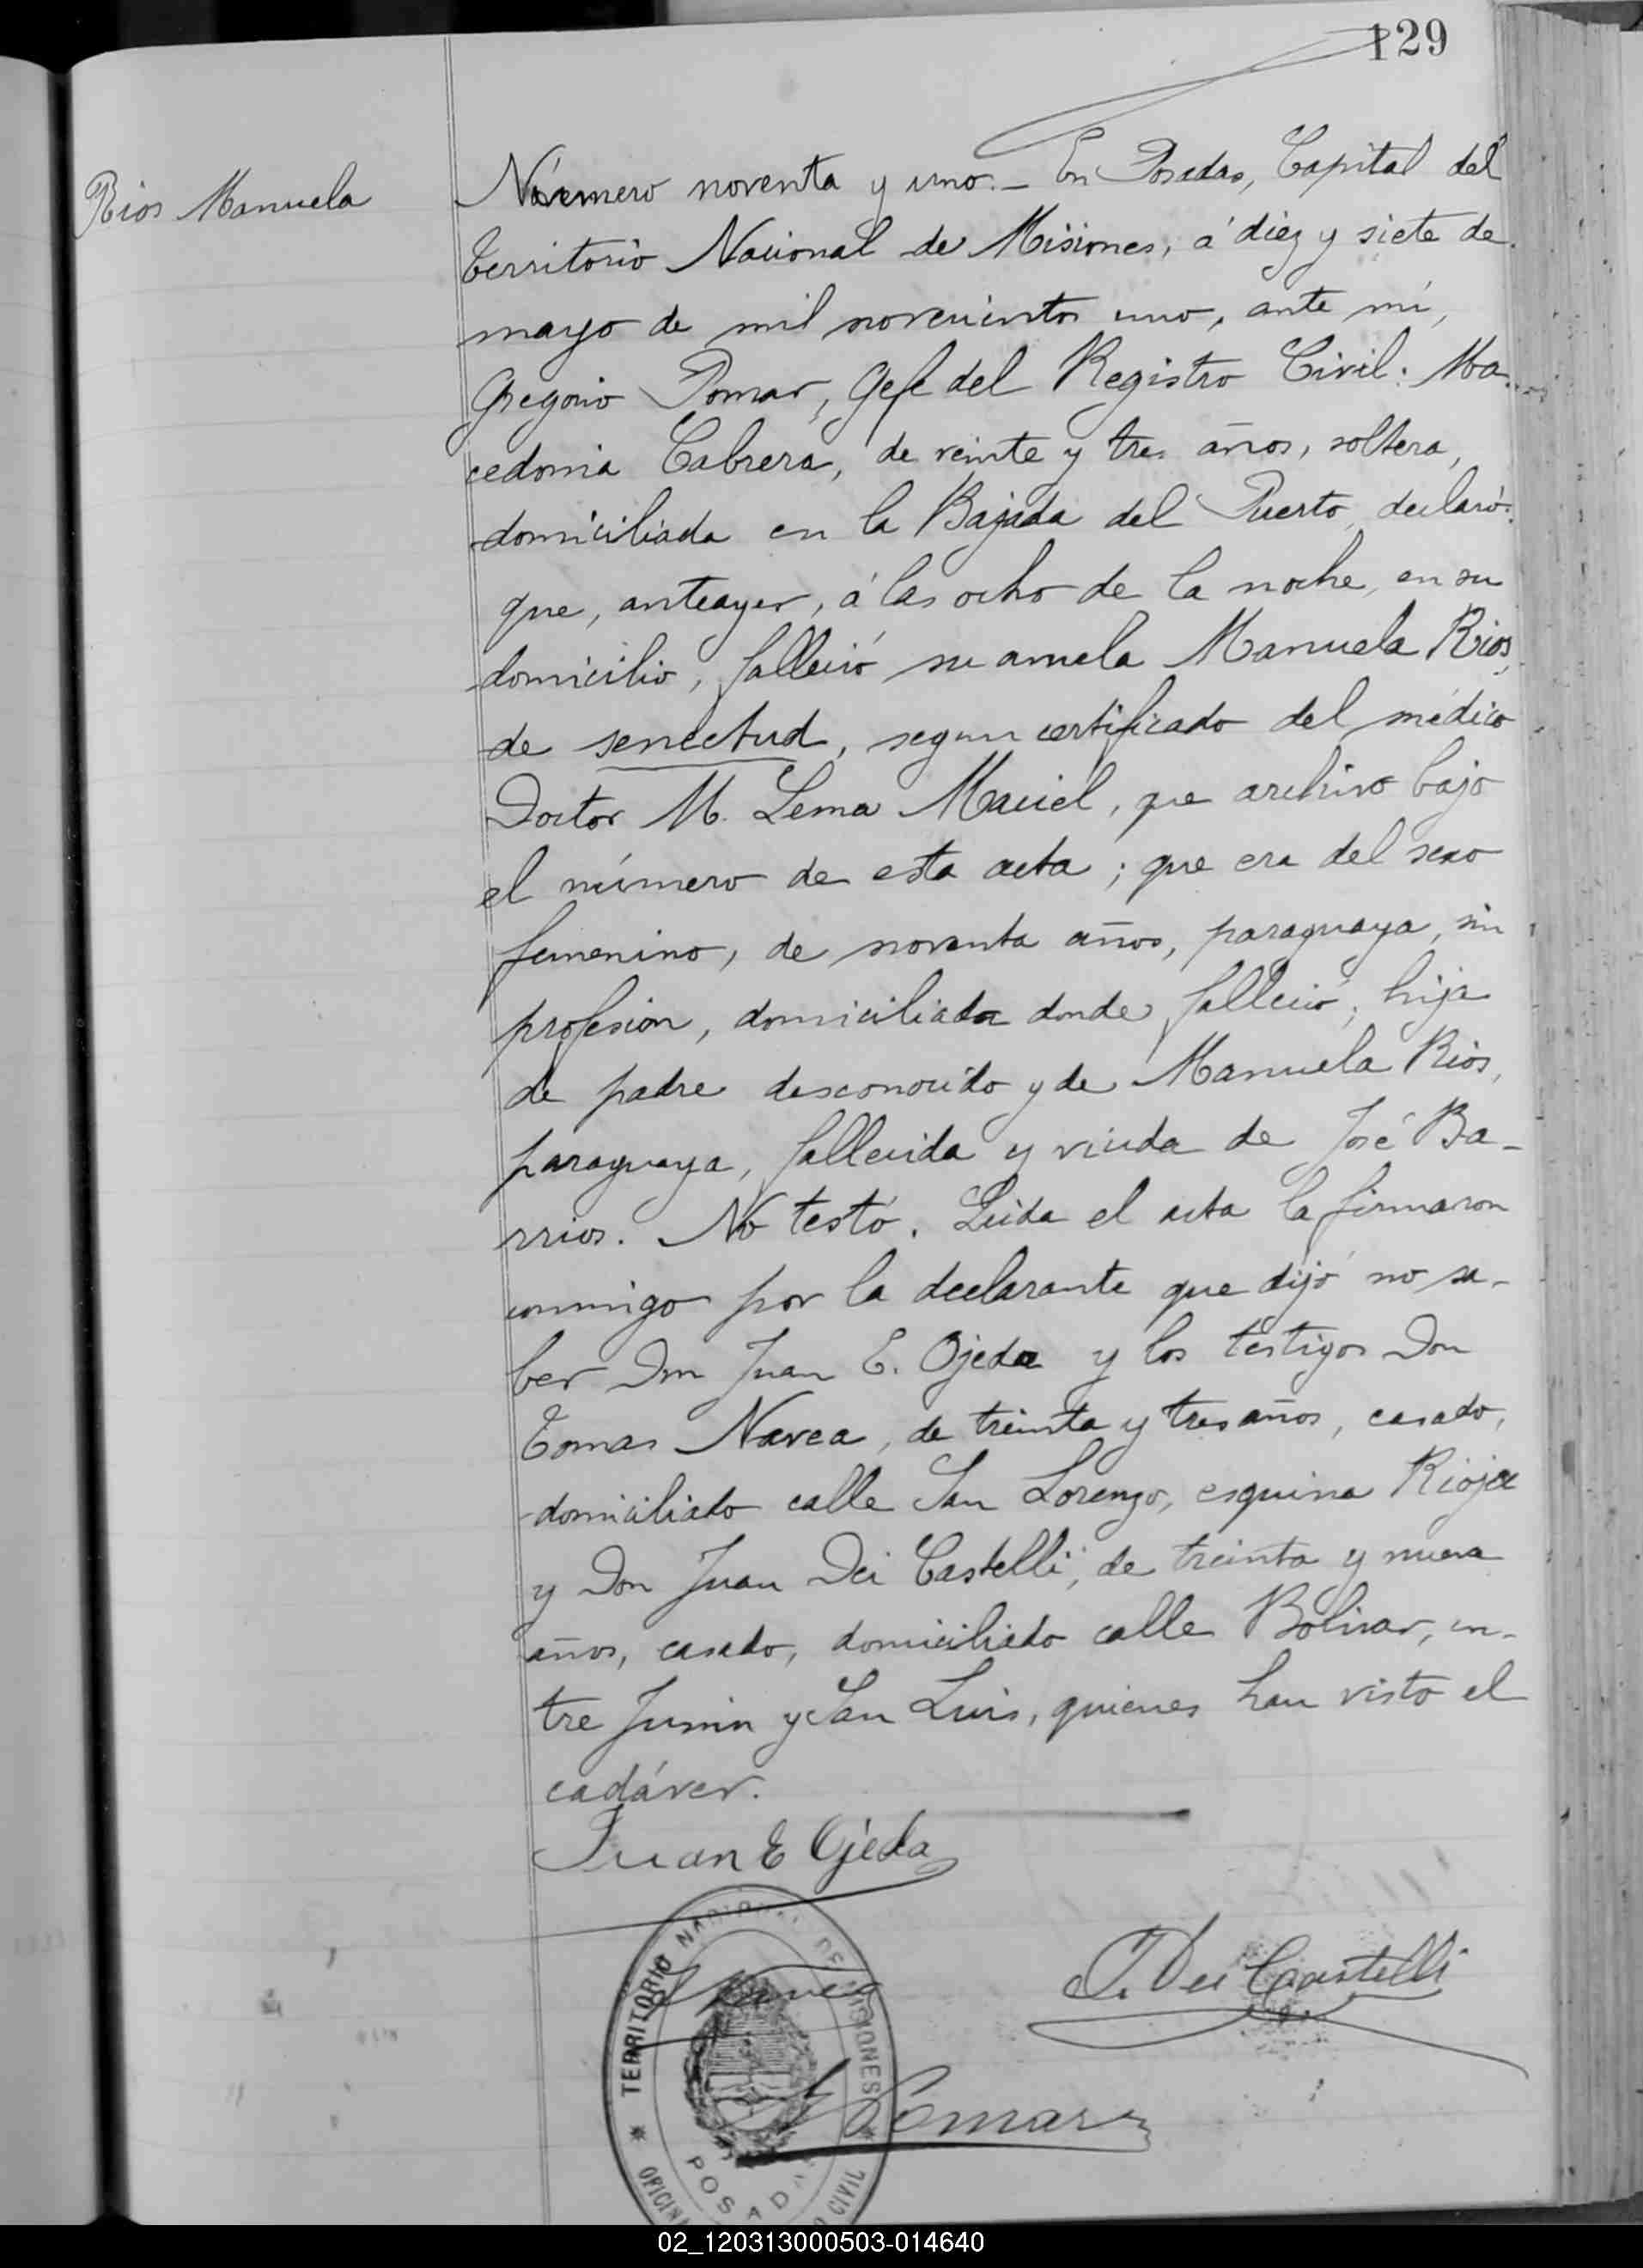 129
Rios Manuela
Número noventa y uno.- En Posadas, Capital del
Territorio Nacional de Misiones, á diez y siete de
mayo de mil novecientos uno, ante mí,
Gregorio Pomar, Gefe del Registro Civil: Ma-
cedonia Cabrera, de veinte y tres años, soltera,
domiciliada en la Bajada del Puerto, declaró:
que, anteayer, á las ocho de la noche, en su
domicilio, falleció su amela Manuela Rios,
de senectud, segun certificado del médico
Doctor M. Lema Maciel, que archivo bajo
el número de esta acta; que era del sexo
femenino, de noventa años, paraguaya, sin
profesion, domiciliada donde falleció; hija
de padre desconocido y de Manuela Rios,
paraguaya, fallecida y viuda de José Ba-
rrios. No testó. Leida el acta la firmaron
conmigo por la declarante que dijó no sa-
ber Don Juan E. Ojeda y los testigos Don
Tomas Navea, de treinta y tres años, casado,
domiciliado calle San Lorenzo, esquina Rioja
y Don Juan Dei Castelli, de treinta y nueve
años, casado, domiciliado calle Bolivar, en-
tre Junin y San Luis, quienes han visto el
cadáver.
Juan E Ojeda
J. Dei Castelli
Pomar
TERRITORIO NACIONAL DE MISIONES
OFICINA
CIVIL
POSADAS
02_120313000503-014640